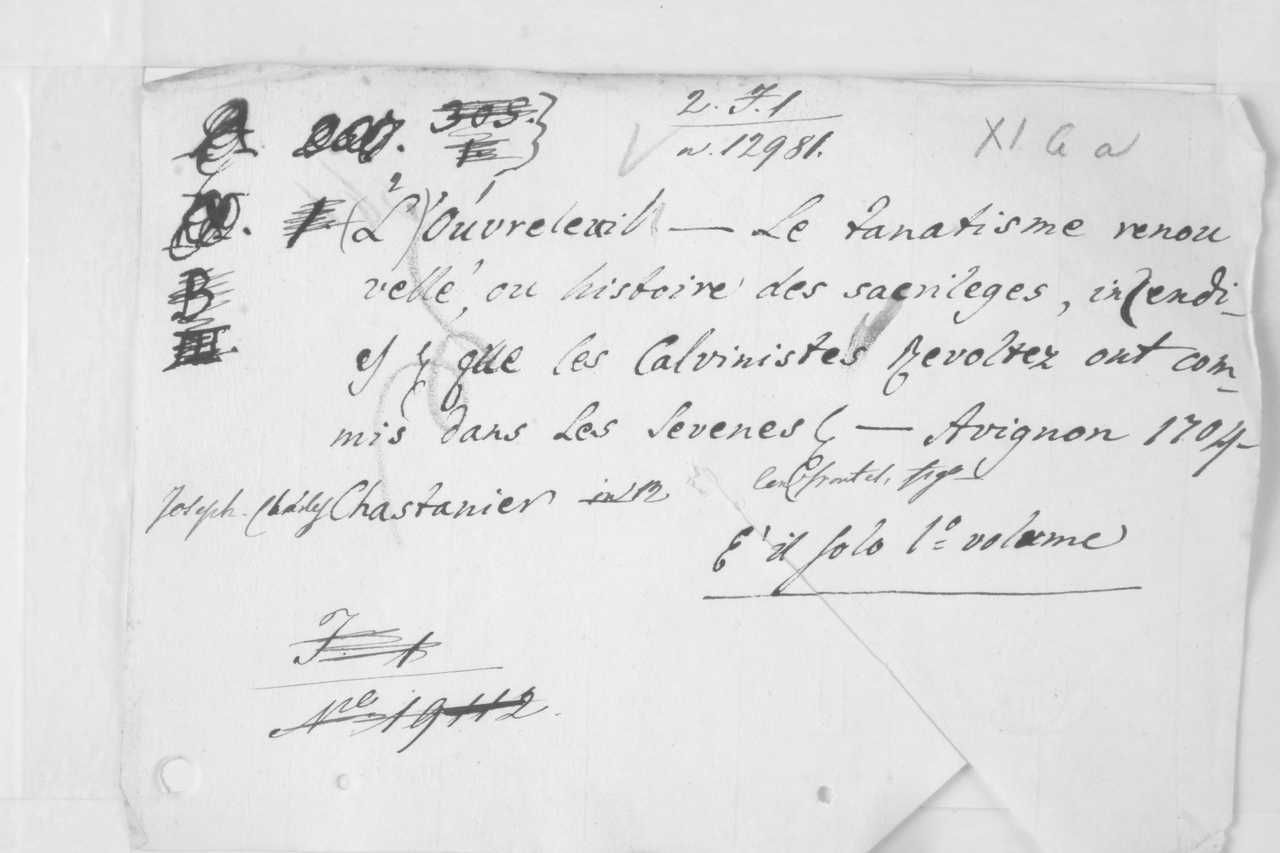 305.
2. F. 1
n. 12981.
XI. G a
(L')Ouvreleuil — Le fanatisme renou
vellé, ou histoire des sacrileges, incendi-
B
es & que les Calvinistes Revoltez ont com-
III.
mis dans Les Sevenes & — Avignon 1704
Joseph. Charles Chastanier in 12
E' il solo 1.º volume
F. 1
Nro. 19112